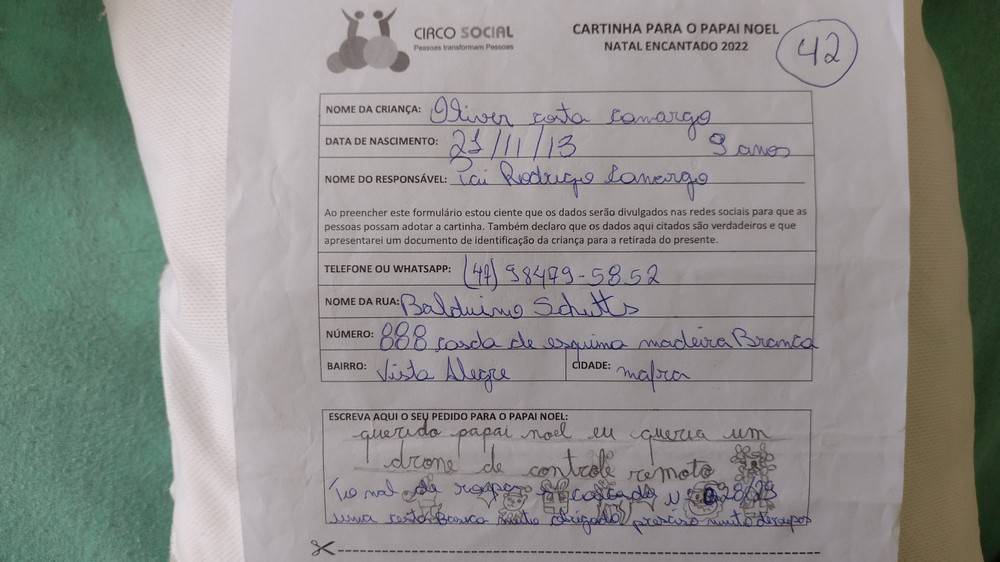 CIRCO SOCIAL
Pessoas transformam Pessoas
CARTINHA PARA O PAPAI NOEL
NATAL ENCANTADO 2022
42
NOME DA CRIANÇA: Oliver costa Camargo
DATA DE NASCIMENTO: 21/11/13 9 anos
NOME DO RESPONSÁVEL: Pai Rodrigo Camargo
Ao preencher este formulário estou ciente que os dados serão divulgados nas redes sociais para que as
pessoas possam adotar a cartinha. Também declaro que os dados aqui citados são verdadeiros e que
apresentarei um documento de identificação da criança para a retirada do presente.
TELEFONE OU WHATSAPP: (47) 98479-5852
NOME DA RUA: Balduino Schutts
NÚMERO: 888 casda de esquima madeira Branca
BAIRRO: Vista Alegre CIDADE: mafra
ESCREVA AQUI O SEU PEDIDO PARA O PAPAI NOEL:
querido papai noel eu queria um
drone de controle remoto
de 28/29
uma cesta Basica muito obrigado preciso muito